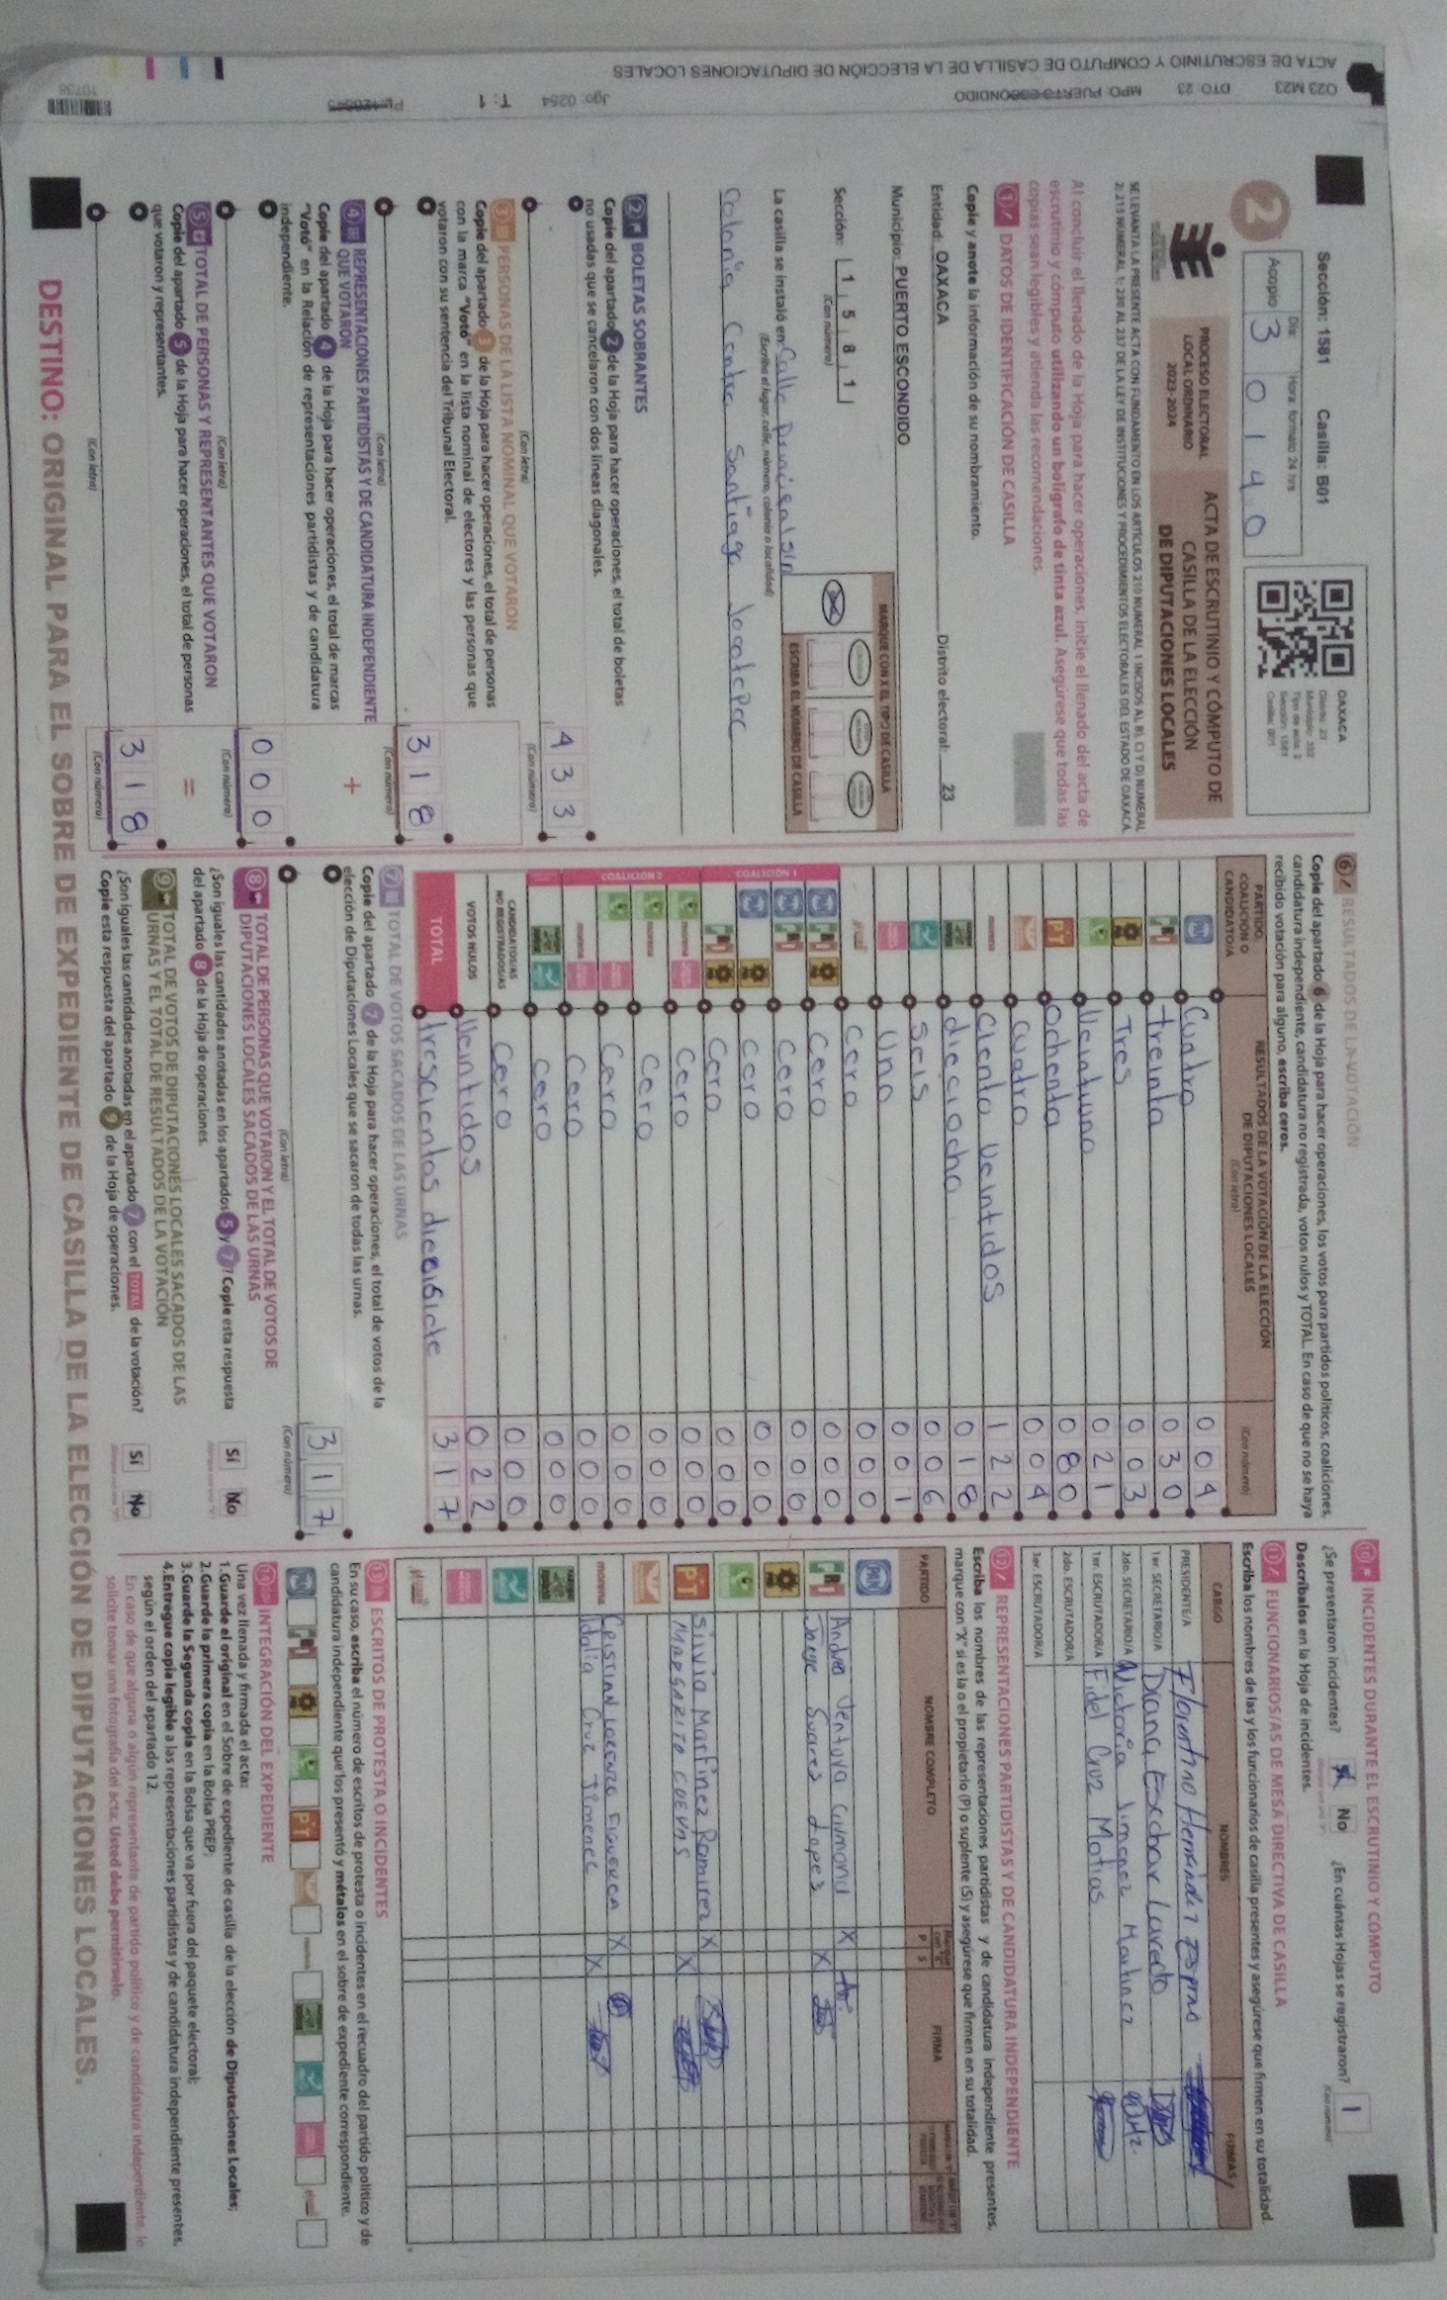 Sección: 1581 Casilla: B01
2
Acopio
Día:
Hora: formato 24 hrs
3 0 1 4 0
OAXACA
PROCESO ELECTORAL
LOCAL ORDINARIO
2023-2024
ACTA DE ESCRUTINIO Y CÓMPUTO DE
CASILLA DE LA ELECCIÓN
DE DIPUTACIONES LOCALES
Al concluir el llenado de la Hoja para hacer operaciones, inicie el llenado del acta de
escrutinio y cómputo utilizando un bolígrafo de tinta azul. Asegúrese que todas las
copias sean legibles y atienda las recomendaciones.
1 DATOS DE IDENTIFICACIÓN DE CASILLA
Copie y anote la información de su nombramiento.
Entidad: OAXACA Distrito electoral: 23
Municipio: PUERTO ESCONDIDO
Sección: 1 5 8 1
(Con número)
MARQUE CON X EL TIPO DE CASILLA
ESCRIBA EL NÚMERO DE CASILLA
La casilla se instaló en: Calle principal s/n
(Escriba el lugar, calle, número, colonia o localidad)
Colonia Centro Santiago Jocotepec
2 BOLETAS SOBRANTES
Copie del apartado 2 de la Hoja para hacer operaciones, el total de boletas
no usadas que se cancelaron con dos líneas diagonales.
4 3 3
(Con letra)
(Con número)
3 PERSONAS DE LA LISTA NOMINAL QUE VOTARON
Copie del apartado 3 de la Hoja para hacer operaciones, el total de personas
con la marca "Votó" en la lista nominal de electores y las personas que
votaron con su sentencia del Tribunal Electoral.
3 1 8
(Con letra)
(Con número)
4 REPRESENTACIONES PARTIDISTAS Y DE CANDIDATURA INDEPENDIENTE
QUE VOTARON
Copie del apartado 4 de la Hoja para hacer operaciones, el total de marcas
"Votó" en la Relación de representaciones partidistas y de candidatura
independiente.
+
0 0 0
(Con letra)
(Con número)
5 TOTAL DE PERSONAS Y REPRESENTANTES QUE VOTARON
Copie del apartado 5 de la Hoja para hacer operaciones, el total de personas
que votaron y representantes.
=
3 1 8
(Con letra)
(Con número)
6 RESULTADOS DE LA VOTACIÓN
Copie del apartado 6 de la Hoja para hacer operaciones, los votos para partidos políticos, coaliciones,
candidatura independiente, candidatura no registrada, votos nulos y TOTAL. En caso de que no se haya
recibido votación para alguno, escriba ceros.
PARTIDO,
COALICIÓN O
CANDIDATO/A
RESULTADOS DE LA VOTACIÓN DE LA ELECCIÓN
DE DIPUTACIONES LOCALES
(Con letra)
(Con número)
PAN Cuatro 0 0 4
PRI treinta 0 3 0
PRD Tres 0 0 3
Veintiuno 0 2 1
PT Ochenta 0 8 0
Cuatro 0 0 4
morena Ciento Veintidos 1 2 2
dieciocho 0 1 8
Seis 0 0 6
Uno 0 0 1
Cero 0 0 0
COALICIÓN 1
Cero 0 0 0
Cero 0 0 0
Cero 0 0 0
Cero 0 0 0
COALICIÓN 2
Cero 0 0 0
Cero 0 0 0
Cero 0 0 0
Cero 0 0 0
Cero 0 0 0
CANDIDATOS/AS
NO REGISTRADOS/AS Cero 0 0 0
VOTOS NULOS Veintidos 0 2 2
TOTAL trescientos diecisiete 3 1 7
7 TOTAL DE VOTOS SACADOS DE LAS URNAS
Copie del apartado 7 de la Hoja para hacer operaciones, el total de votos de la
elección de Diputaciones Locales que se sacaron de todas las urnas.
3 1 7
(Con letra)
(Con número)
8 TOTAL DE PERSONAS QUE VOTARON Y EL TOTAL DE VOTOS DE
DIPUTACIONES LOCALES SACADOS DE LAS URNAS
¿Son iguales las cantidades anotadas en los apartados 5 y 7? Copie esta respuesta
del apartado 8 de la Hoja de operaciones.
Sí No
9 TOTAL DE VOTOS DE DIPUTACIONES LOCALES SACADOS DE LAS
URNAS Y EL TOTAL DE RESULTADOS DE LA VOTACIÓN
¿Son iguales las cantidades anotadas en el apartado 7 con el TOTAL de la votación?
Copie esta respuesta del apartado 9 de la Hoja de operaciones.
Sí No
10 INCIDENTES DURANTE EL ESCRUTINIO Y CÓMPUTO
¿Se presentaron incidentes? Sí No ¿En cuántas Hojas se registraron? 1
Descríbalos en la Hoja de incidentes.
11 FUNCIONARIOS/AS DE MESA DIRECTIVA DE CASILLA
Escriba los nombres de las y los funcionarios de casilla presentes y asegúrese que firmen en su totalidad.
CARGO NOMBRES FIRMAS
PRESIDENTE/A Florentino Hernández
1er SECRETARIO/A Diana Escobar
2do. SECRETARIO/A Victoria Jimenez Martinez
1er ESCRUTADOR/A Fidel Cruz Matias
2do. ESCRUTADOR/A
3er ESCRUTADOR/A
12 REPRESENTACIONES PARTIDISTAS Y DE CANDIDATURA INDEPENDIENTE
Escriba los nombres de las representaciones partidistas y de candidatura independiente presentes,
marque con "X" si es la o el propietario (P) o suplente (S) y asegúrese que firmen en su totalidad.
PARTIDO NOMBRE COMPLETO P S FIRMA
PAN
PRI Andrea Ventura X
Jorge Suares Lopes X
PRD
PT Silvia Martinez Ramirez X
MARGARITO CUEVAS X
morena Cristian Lorenzo Figueroa X
Idalia Cruz Jimenez X
13 ESCRITOS DE PROTESTA O INCIDENTES
En su caso, escriba el número de escritos de protesta o incidentes en el recuadro del partido político y de
candidatura independiente que los presentó y métalos en el sobre de expediente correspondiente.
14 INTEGRACIÓN DEL EXPEDIENTE
Una vez llenada y firmada el acta:
1. Guarde el original en el Sobre de expediente de casilla de la elección de Diputaciones Locales;
2. Guarde la primera copia en la Bolsa PREP;
3. Guarde la Segunda copia en la Bolsa que va por fuera del paquete electoral;
4. Entregue copia legible a las representaciones partidistas y de candidatura independiente presentes,
según el orden del apartado 12.
En caso de que alguna o algún representante de partido político y de candidatura independiente le
solicite tomar una fotografía del acta: Usted debe permitírselo.
DESTINO: ORIGINAL PARA EL SOBRE DE EXPEDIENTE DE CASILLA DE LA ELECCIÓN DE DIPUTACIONES LOCALES.
O23 M23 DTO: 23 MPO: PUERTO ESCONDIDO Jgo: 0254 T: 1
ACTA DE ESCRUTINIO Y CÓMPUTO DE CASILLA DE LA ELECCIÓN DE DIPUTACIONES LOCALES